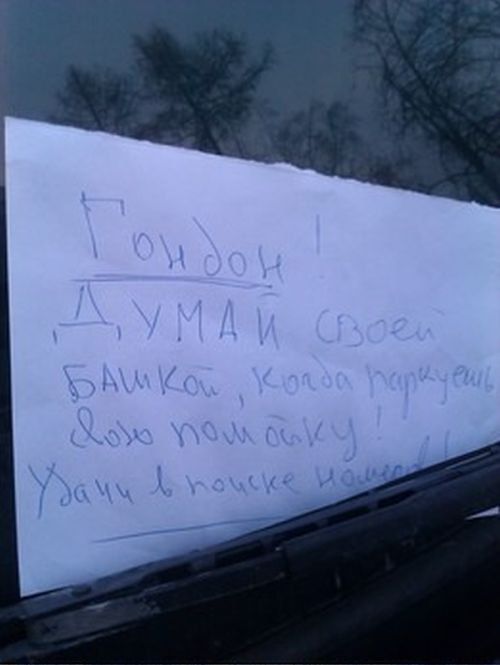 Гондон!
ДУМАЙ своей
БАШКОЙ, когда паркуешь
свою помойку!
Удачи в поиске номеров!